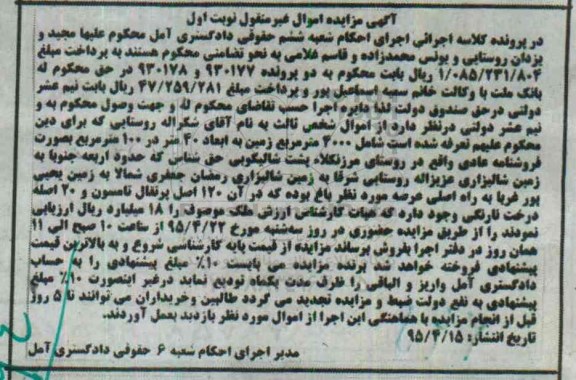 آگهی مزایده اموال غیرمنقول نوبت اول
در پرونده کلاسه اجرائی اجرای احکام شعبه ششم حقوقی دادگستری آمل محکوم علیها مجید و
یزدان روستایی و یونس محمدزاده و قاسم غلامی به نحو تضامنی محکوم هستند به پرداخت مبلغ
۱/۰۸۵/۲۳۱/۸۰۴ ریال بابت محکوم به دو پرونده ۹۳۰۱۷۷ و ۹۳۰۱۷۸ در حق محکوم له
بانک ملت با وکالت خانم سمیه اسماعیل پور و پرداخت مبلغ ۴۷/۲۵۹/۲۸۱ ریال بابت نیم عشر
دولتی درحق صندوق دولت لذا دایره اجرا حسب تقاضای محکوم له و جهت وصول محکوم به و
نیم عشر دولتی درنظر دارد از اموال شخص ثالث به نام آقای شکراله روستایی که برای دین
محکوم علیهم تعرفه شده است شامل ۴۰۰۰ مترمربع زمین به ابعاد ۴۰ متر در ۱۰۰ مترمربع بصورت
فروشنامه عادی واقع در روستای مرزنکلاء پشت شالیکوبی حق شناس که حدود اربعه جنوبا به
زمین شالیزاری عزیزاله روستایی شرقا به زمین شالیزاری رمضان جعفری شمالا به زمین یحیی
پور غربا به راه اصلی عرصه مورد نظر باغ بوده که در آن ۱۲۰ اصل پرتقال تامسون و ۲۰ اصله
درخت نارنگی وجود دارد که هیات کارشناسی ارزش ملک موصوف را ۱۸ میلیارد ریال ارزیابی
نمودند را از طریق مزایده حضوری در روز سه‌شنبه مورخ ۹۵/۴/۲۲ از ساعت ۱۰ صبح الی ۱۱
همان روز در دفتر اجرا بفروش برساند مزایده از قیمت پایه کارشناسی شروع و به بالاترین قیمت
پیشنهادی فروخته خواهد شد برنده مزایده می بایست ۱۰٪ مبلغ پیشنهادی را به حساب
دادگستری آمل واریز و الباقی را ظرف مدت یکماه تودیع نماید درغیر اینصورت ۱۰٪ مبلغ
پیشنهادی به نفع دولت ضبط و مزایده تجدید می گردد طالبین وخریداران می توانند تا ۵ روز
قبل از انجام مزایده با هماهنگی این اجرا از اموال مورد نظر بازدید بعمل آوردند.
تاریخ انتشار: ۹۵/۴/۱۵
مدیر اجرای احکام شعبه ۶ حقوقی دادگستری آمل